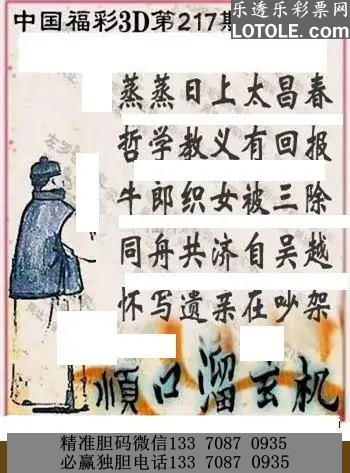 乐透乐彩票网
LOTOLE.COM
中国福彩3D第217期
蒸蒸日上太昌春
哲学教义有回报
牛郎织女被三除
同舟共济自吴越
怀写遗亲在吵架
顺口溜玄机
精准胆码微信133 7087 0935
必赢独胆电话133 7087 0935